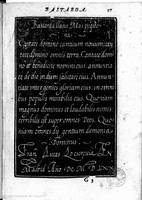 BASTARDA. 57
Bastarda llana Mas peque
ña.
Cantate domino canticum novum can
tate domino omnis terra. Cantate domi
no et benedicite nomini eius, annuncia
te de die in diem salutari eius. Annun
tiate inter gentes gloriam eius, in om
nibus populis mirabilia eius. Quoniam
magnus dominus et laudabilis nimis
terribilis est super omnes Deos. Quo
niam omnes dii gentium demonia
Dominus
Fran. Lucas lo escrevia En
Madrid Año De M D LXX
G 3